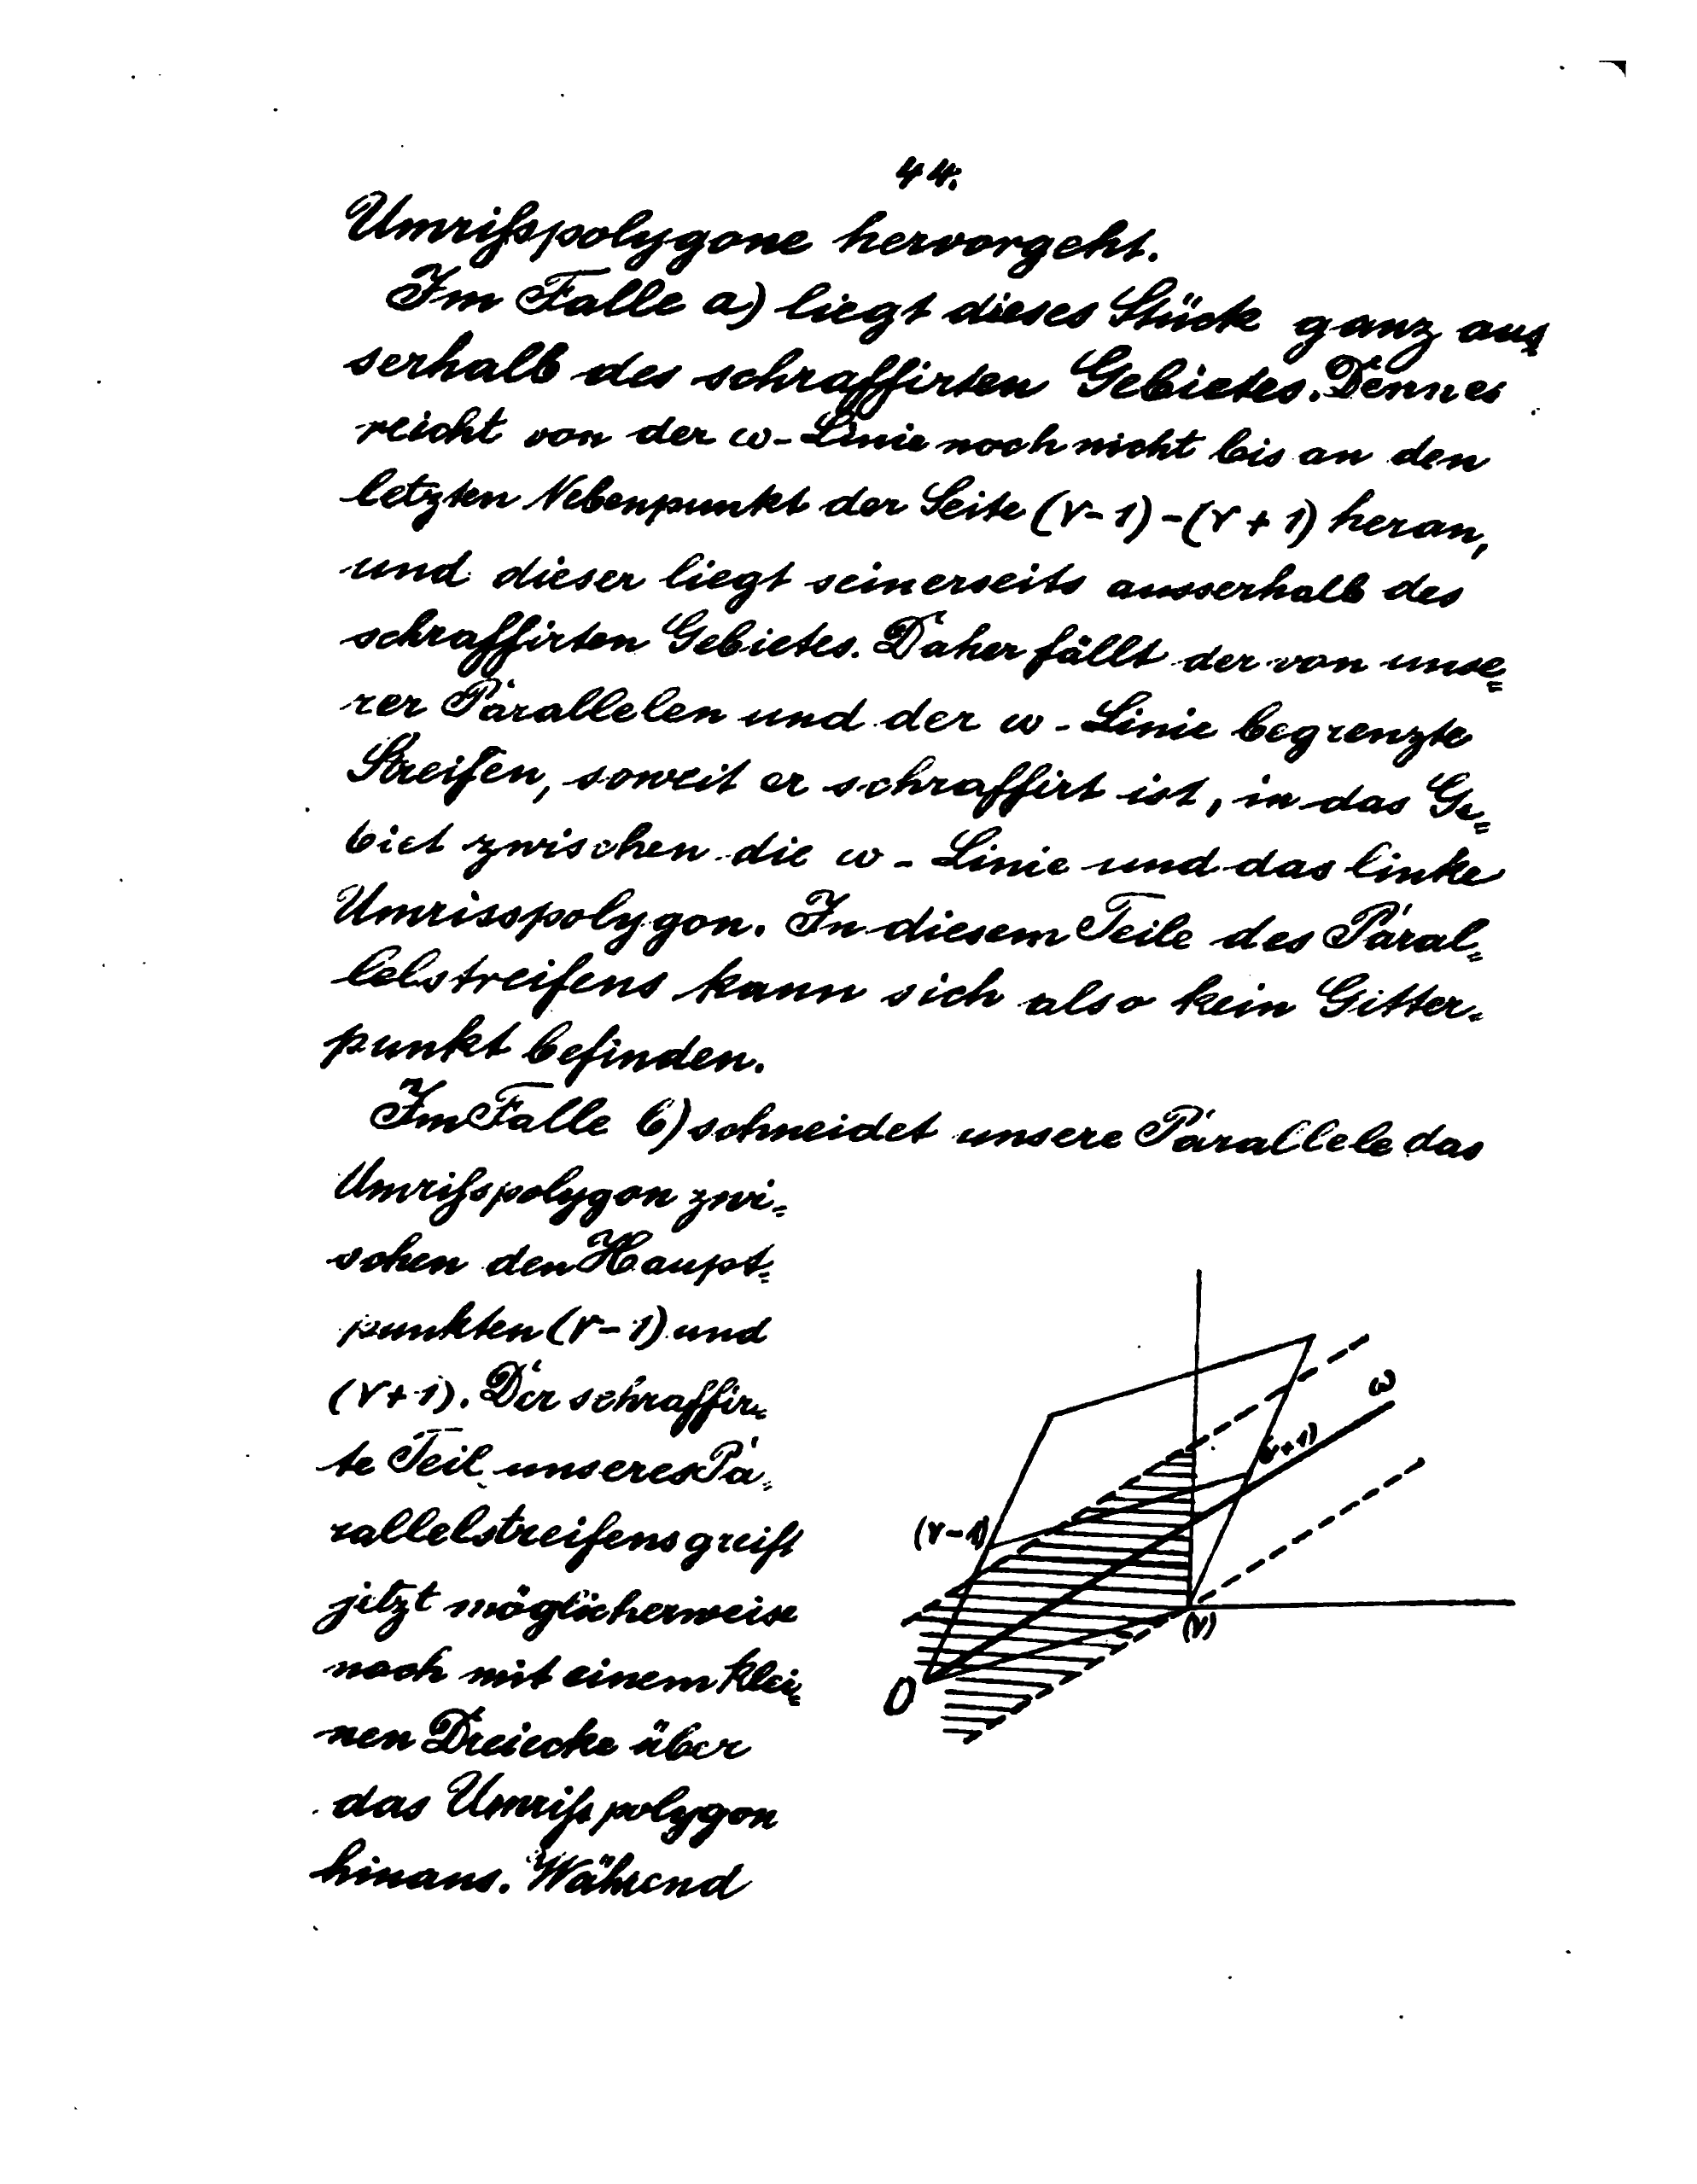 44.
Umrißpolygone hervorgeht.
Im Falle a) liegt dieses Stück ganz aus=
serhalb des schraffirten Gebietes. Denn es
reicht von der ω-Linie noch nicht bis an den
letzten Nebenpunkt der Seite (ν-1)-(ν+1) heran,
und dieser liegt seinerseits ausserhalb des
schraffirten Gebietes. Daher fällt der von unse=
rer Parallelen und der ω-Linie begrenzte
Streifen, soweit er schraffirt ist, in das Ge=
biet zwischen die ω-Linie und das linke
Umrisspolygon. In diesem Teile des Paral=
lelstreifens kann sich also kein Gitter=
punkt befinden.
Im Falle b) schneidet unsere Parallele das
Umrißpolygon zwi=
schen den Haupt=
punkten (ν-1) und
(ν+1). Der schraffir=
te Teil unseres Pa=
rallelstreifens greift
jetzt möglicherweise
noch mit einem klei=
nen Dreiecke über
das Umrißpolygon
hinaus. Während
ω
(ν+1)
(ν-1)
(ν)
O